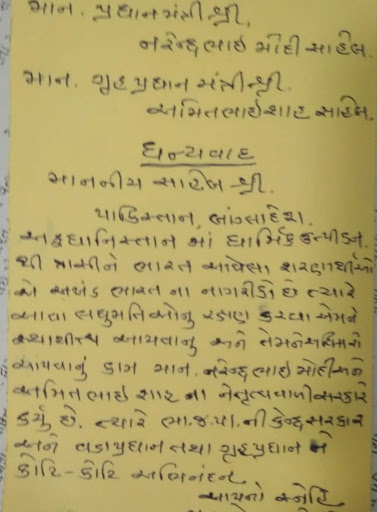 માન. પ્રધાનમંત્રી શ્રી,
નરેન્દ્રભાઇ મોદી સાહેબ.
માન. ગૃહ પ્રધાન મંત્રી શ્રી.
અમિતભાઇ શાહ સાહેબ.
ધન્યવાદ
માનનીય સાહેબ શ્રી.
પાકિસ્તાન, બાંગ્લાદેશ,
અફઘાનિસ્તાન માં ધાર્મિક ઉત્પીડન
થી ત્રાસીને ભારત આવેલા શરણાર્થીઓ
એ અખંડ ભારત ના નાગરીકો છે ત્યારે
આવા લઘુમતિઓનુ રક્ષણ કરવા એમને
સ્થાયીત્વ આપવાનુ અને તેમને
આપવાનું કામ માન. નરેન્દ્રભાઇ મોદી અને
અમિતભાઇ શાહ ના નેતૃત્વવાળી સરકારે
કર્યુ છે. ત્યારે ભા.જ.પા. ની કેન્દ્ર સરકાર
અને વડાપ્રધાન તથા ગૃહપ્રધાન ને
કોટિ-કોટિ અભિનંદન
આપનો સ્નેહિ